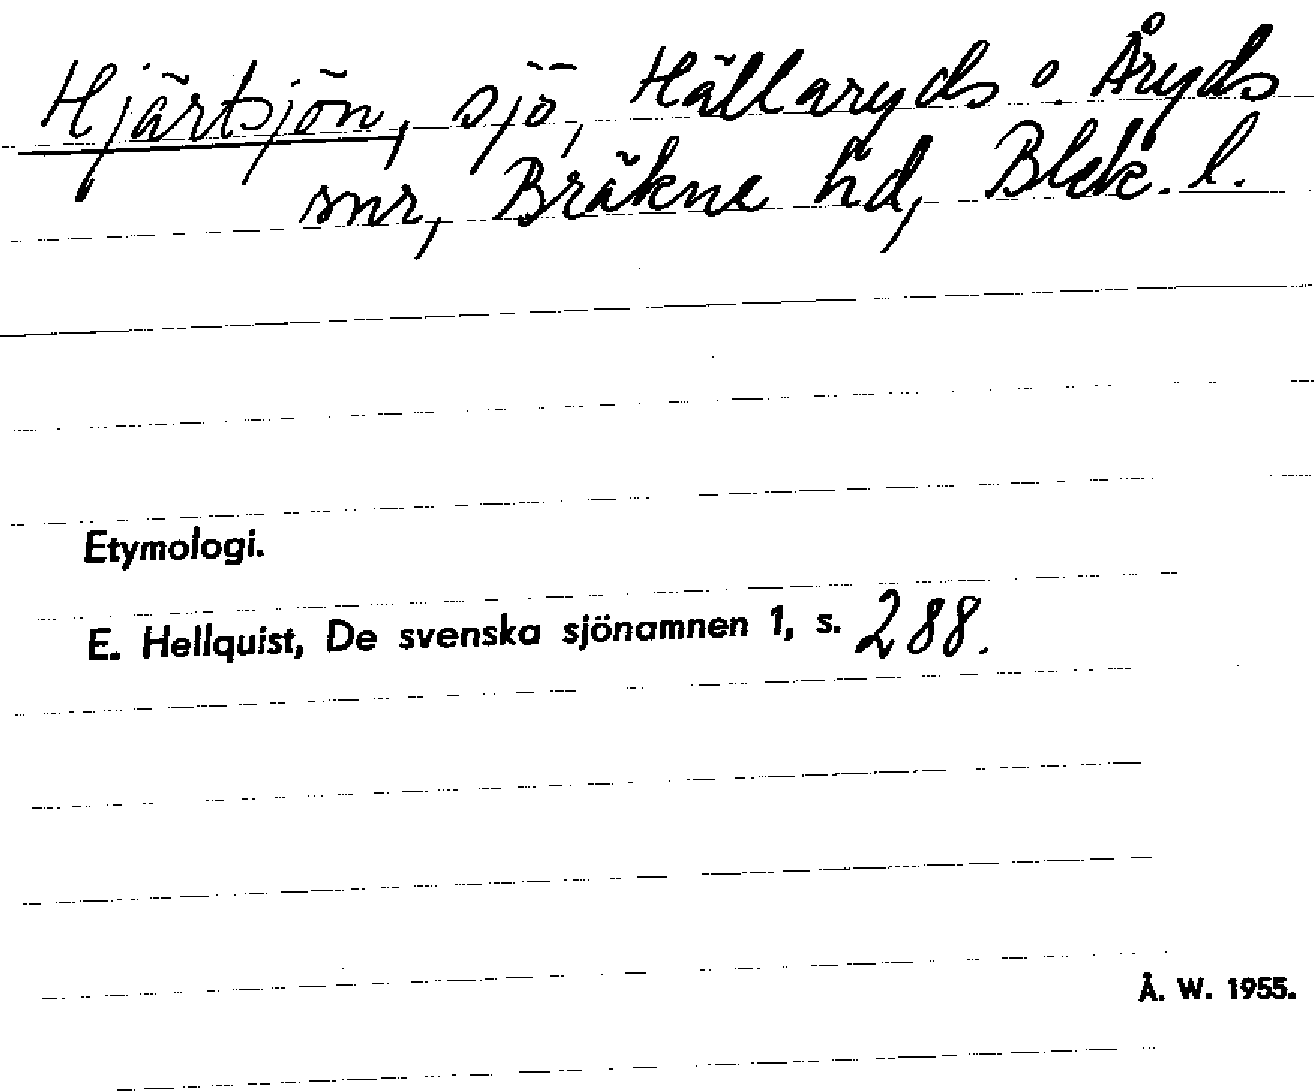 Hjärtsjön, sjö, Hällaryds o. Åryds
snr, Bräkne hd, Blek. l.
Etymologi.
E. Hellquist, De svenska sjönamnen 1, s. 288.
Å. W. 1955.